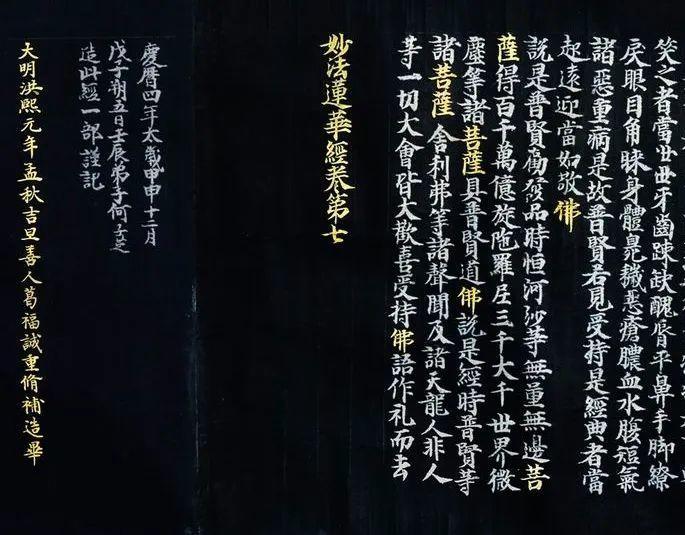 笑之者當世世牙齒踈缺醜脣平鼻手脚繚
戾眼目角睞身體臰穢惡瘡膿血水腹短氣
諸惡重病是故普賢若見受持是經典者當
起遠迎當如敬佛
說是普賢勸發品時恒河沙等無量無邊菩
薩得百千萬億旋陁羅尼三千大千世界微
塵等諸菩薩具普賢道佛說是經時普賢等
諸菩薩舍利弗等諸聲聞及諸天龍人非人
等一切大會皆大歡喜受持佛語作礼而去
妙法蓮華經卷第七
慶曆四年太歲甲申十二月
戊子朔五日壬辰弟子何子芝
造此經一部謹記
大明洪熙元年孟秋吉旦善人葛福誠重脩補造畢